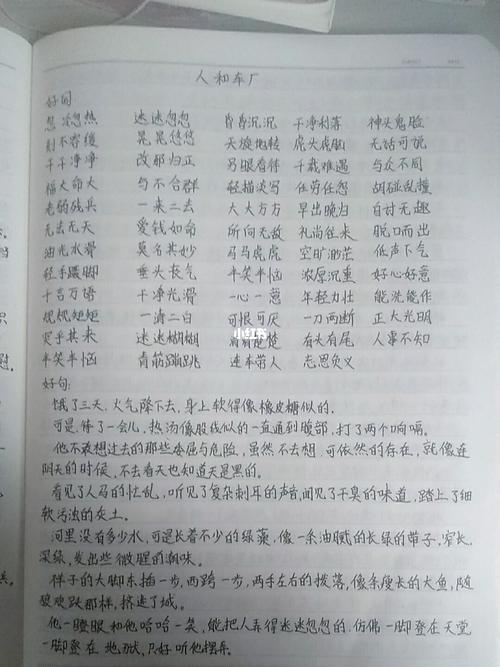 人和车厂
好词
忽冷忽热 迷迷忽忽 昏昏沉沉 干净利落 神头鬼脸
刻不容缓 晃晃悠悠 天旋地转 虎头虎脑 无话可说
干干净净 改邪归正 另眼看待 千载难遇 与众不同
福大命大 与不合群 轻描淡写 任劳任怨 胡碰乱撞
老弱残兵 一来二去 大大方方 早出晚归 自讨无趣
无法无天 爱钱如命 所向无敌 礼尚往来 脱口而出
油光水滑 莫名其妙 马马虎虎 空旷渺茫 低声下气
轻手蹑脚 垂头丧气 半笑半恼 浓厚沉重 好心好意
千言万语 干净光滑 一心一意 年轻力壮 能洗能作
规规矩矩 一清二白 可恨可厌 一刀两断 正大光明
突乎其来 迷迷糊糊 清清楚楚 有头有尾 人事不知
半笑半恼 青筋蹦跳 连本带人 忘恩负义
小红书
好句:
饿了三天,火气降下去,身上软得像橡皮糖似的。
可是,停了一会儿,热汤像股线似的一直通到腹部,打了两个响嗝。
他不敢想过去的那些委屈与危险,虽然不去想,可依然的存在,就像连
阴天的时侯,不去看天也知道天是黑的。
看见了人马的忙乱,听见了复杂刺耳的声音,闻见了干臭的味道,踏上了细
软污浊的灰土。
河里没有多少水,可是长着不少的绿藻,像一条油腻的长绿的带子,窄长,
深绿,发出些微腥的潮味。
样子的大脚东插一步,西跨一步,两手左右的拨落,像条瘦长的大鱼,随
浪欢跃那样,挤进了城。
他一瞪眼和他哈哈一笑,能把人弄得迷迷忽忽的,仿佛一脚登在天堂
一脚登在地狱,只好听他摆弄。